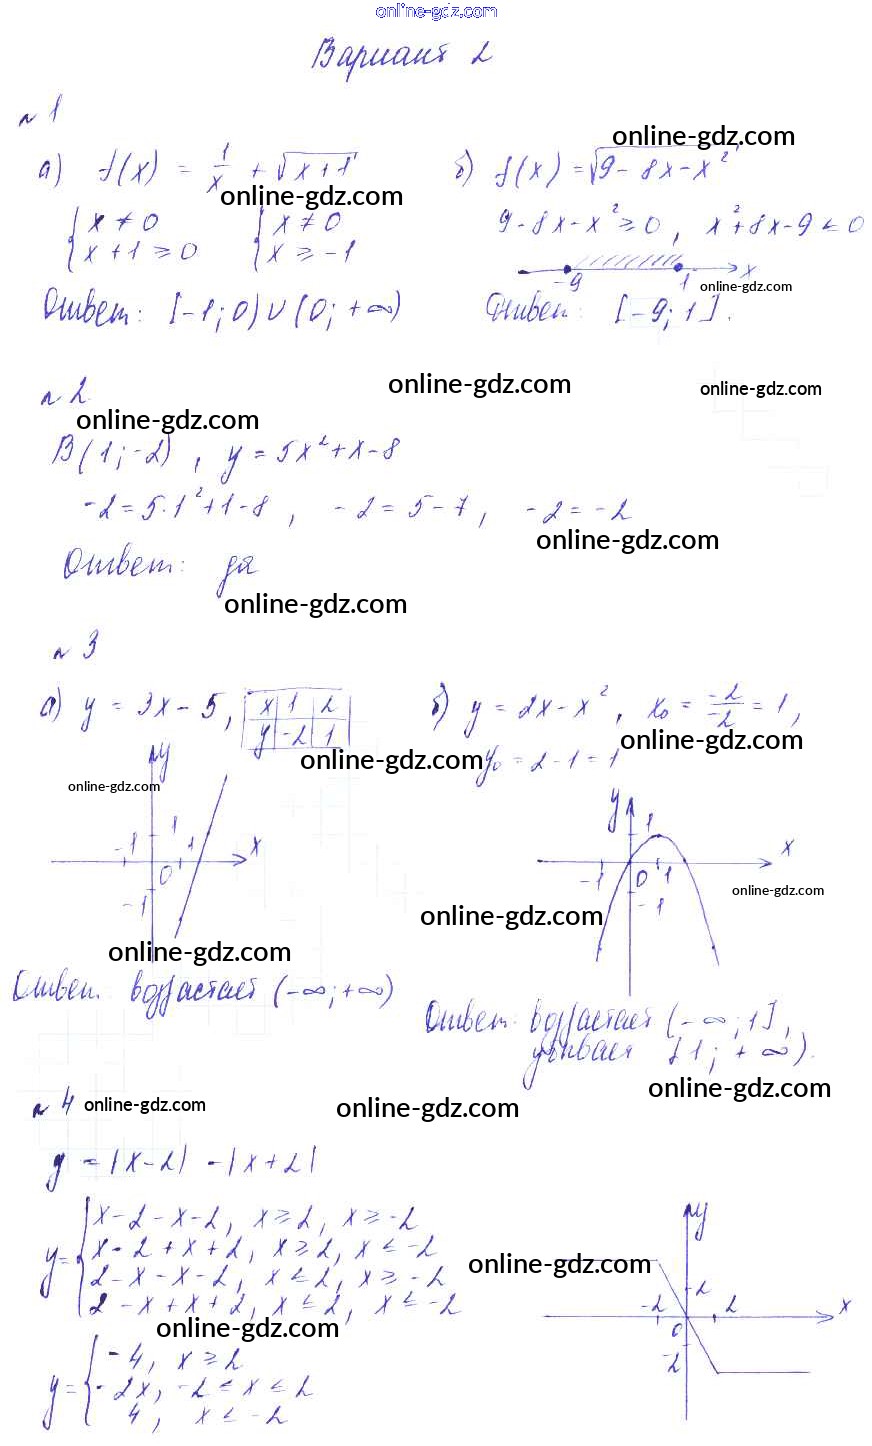 online-gdz.com
Вариант 2
№ 1
а) f(x) = 1/x + √(x+1)
online-gdz.com
{ x ≠ 0 { x ≠ 0
{ x + 1 ≥ 0 { x ≥ -1
Ответ: [-1; 0) ∪ (0; +∞)
online-gdz.com
б) f(x) = √(9 - 8x - x²)
9 - 8x - x² ≥ 0, x² + 8x - 9 ≤ 0
-9 1 x
online-gdz.com
Ответ: [-9; 1].
№ 2
online-gdz.com online-gdz.com
online-gdz.com
B(1; -2), y = 5x² + x - 8
-2 = 5·1² + 1 - 8, -2 = 5 - 7, -2 = -2
online-gdz.com
Ответ: да
online-gdz.com
№ 3
а) y = 3x - 5,
x 1 2
y -2 1
online-gdz.com
online-gdz.com
y
-1 1 1 x
0
-1
online-gdz.com
Ответ. возрастает (-∞; +∞)
б) y = 2x - x², x₀ = -2/-2 = 1,
online-gdz.com
y₀ = 2 - 1 = 1
y 1 x
-1 0 1
-1
online-gdz.com
online-gdz.com
Ответ: возрастает (-∞; 1],
убывает [1; +∞).
online-gdz.com
№ 4 online-gdz.com online-gdz.com
y = |x-2| - |x+2|
y = { x - 2 - x - 2, x ≥ 2, x ≥ -2
x - 2 + x + 2, x ≥ 2, x ≤ -2
2 - x - x - 2, x ≤ 2, x ≥ -2
2 - x + x + 2, x ≤ 2, x ≤ -2
online-gdz.com
online-gdz.com
y = { -4, x ≥ 2
-2x, -2 ≤ x ≤ 2
4, x ≤ -2
y
2
-2 2 x
0
-2